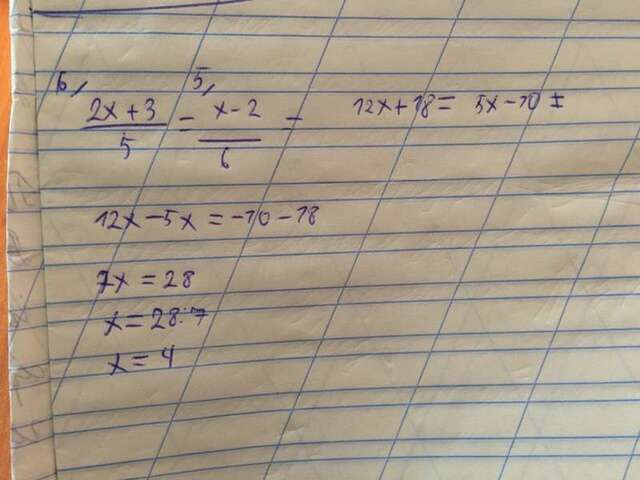 6, 5,
2x+3/5 = x-2/6 = 12x+18= 5x-10 =
12x-5x = -10-18
7x = 28
x=28:7
x=4